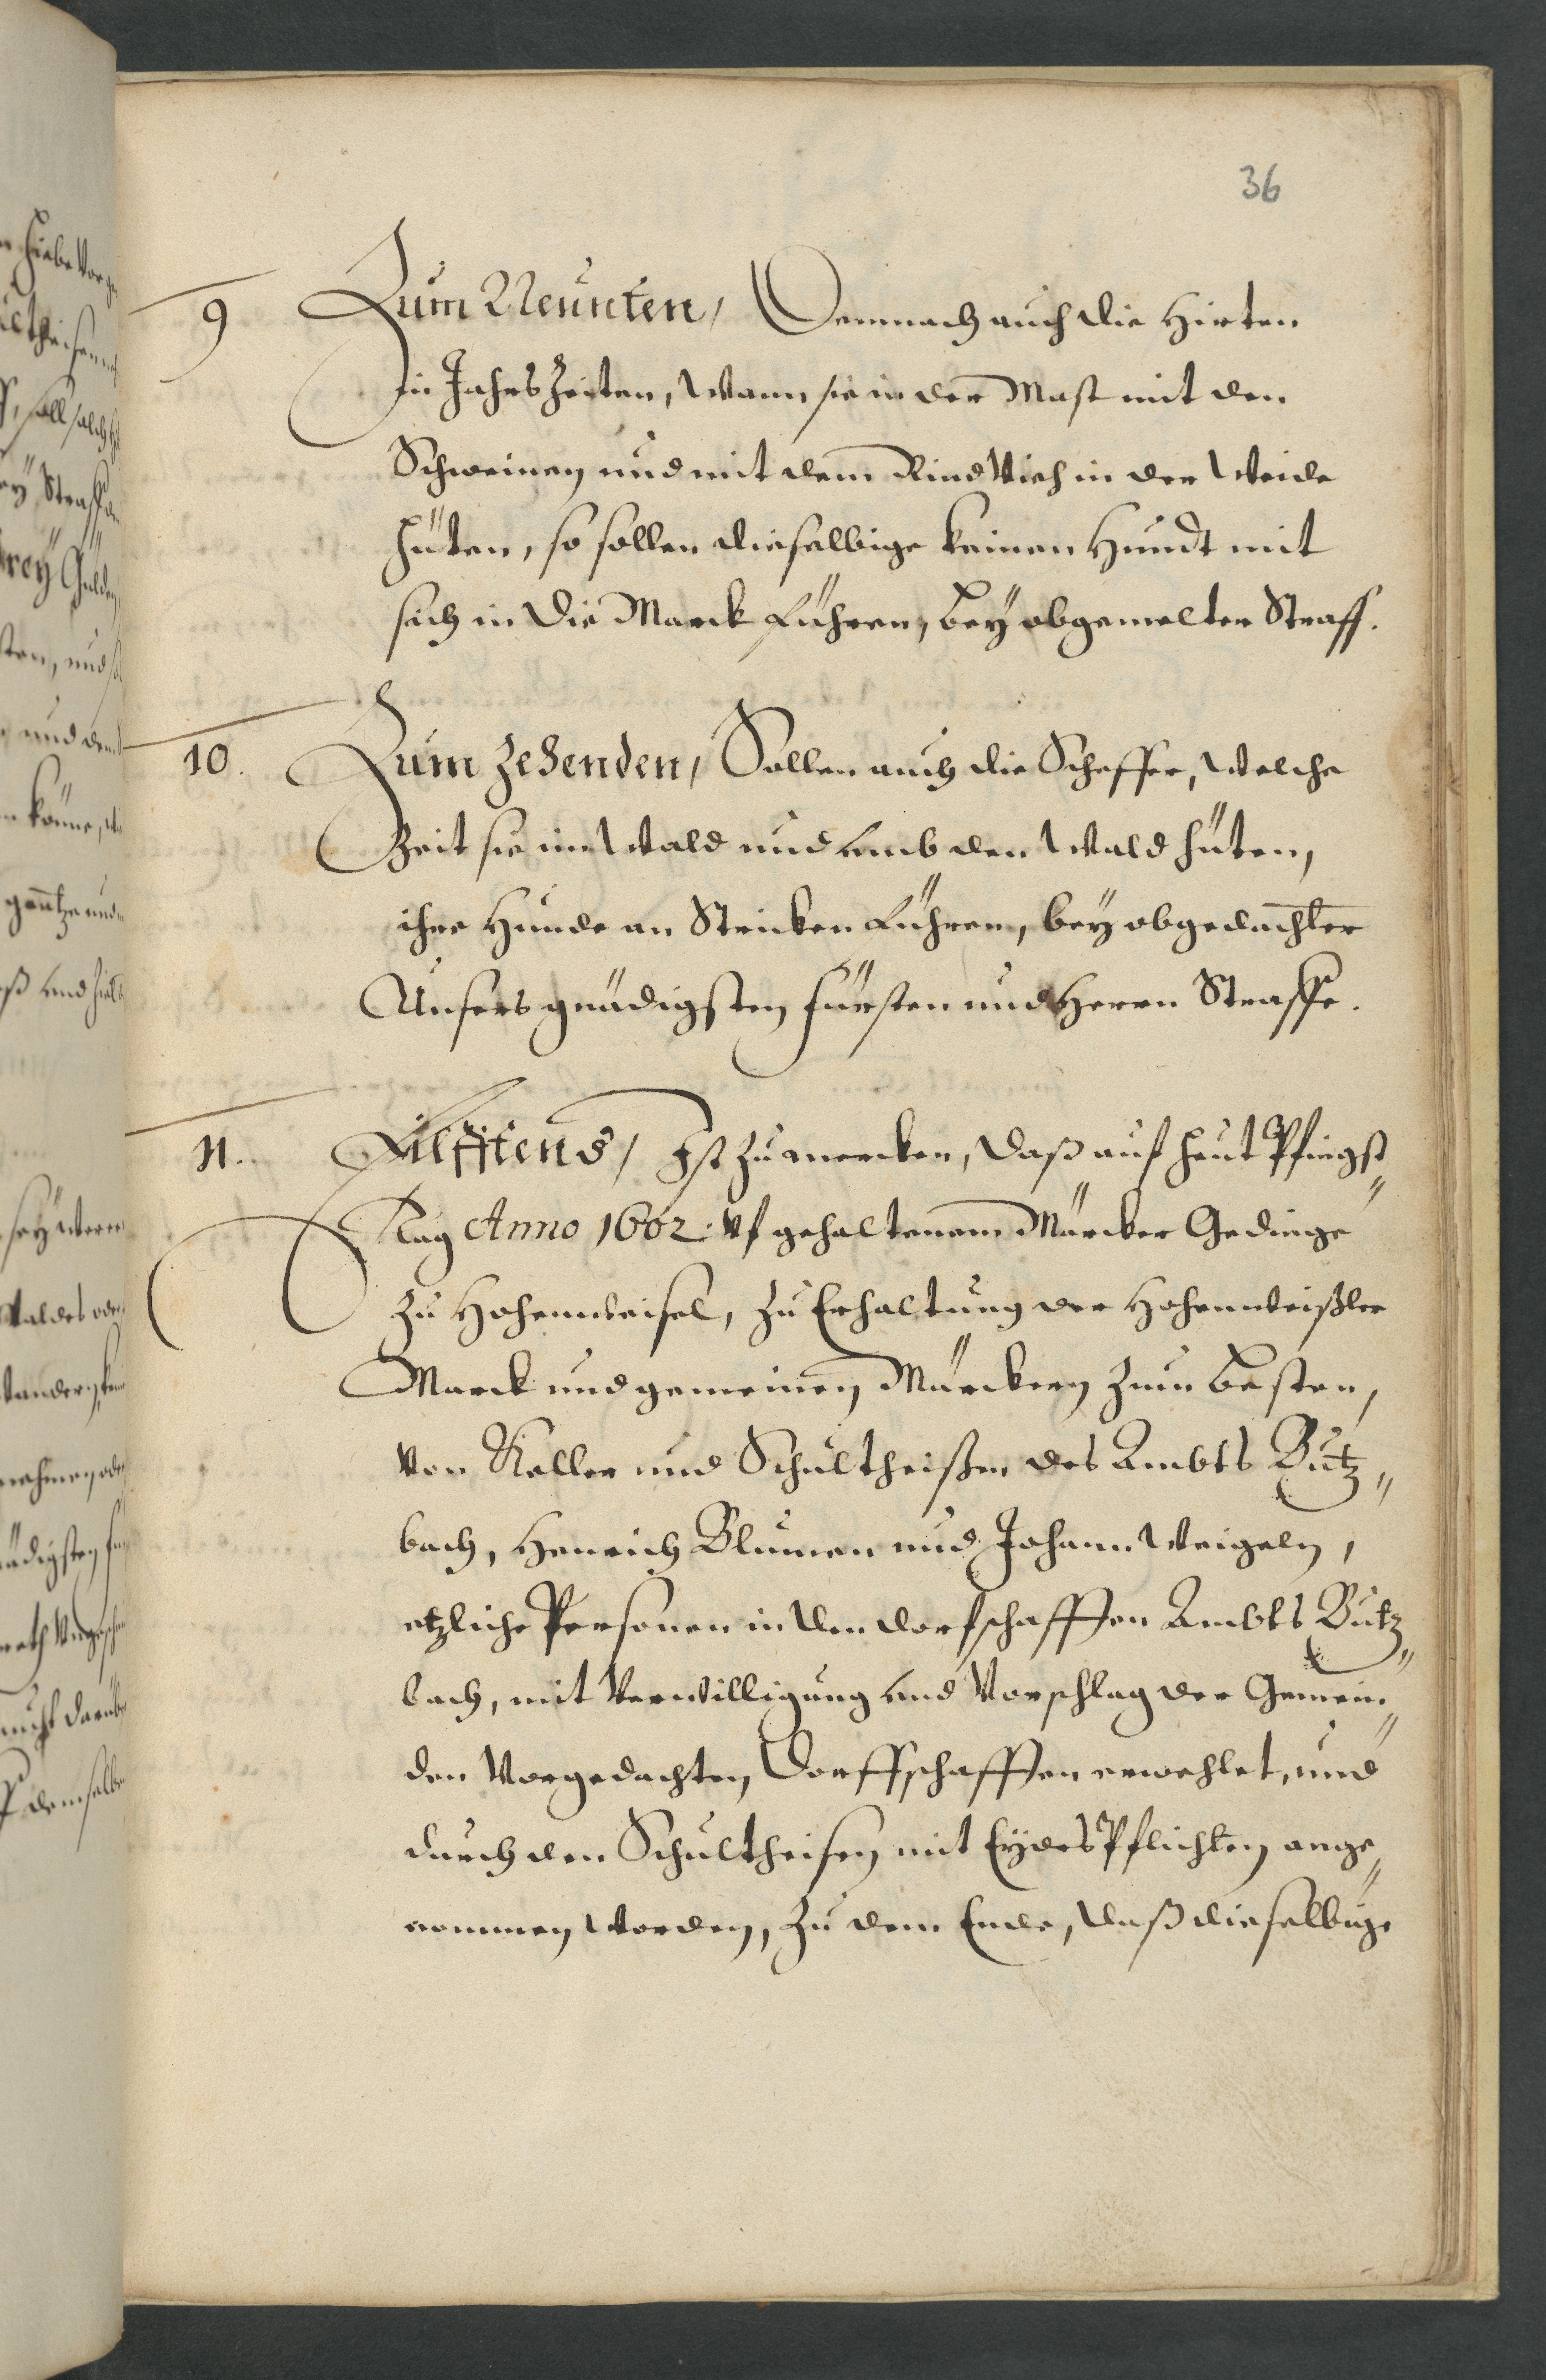 36
9 Zum Neunten, Demnach auch die Hirten
in Jahrs Zeiten, Wann sie in der Mast mit den
Schweinen und mit dem RindVieh in der Weide
hüten, so sollen dieselbige keinen Hundt mit
sich in die Marck führen, bey obgemelter Straff.
10. Zum Zehenden, Sollen auch die Scheffer, Welche
Zeit sie im Wald und umb den Wald hüten,
ihre Hunde an Stricken führen, bey obgedachter
Unsers gnädigsten Fürsten und Herrn Straffe.
11. Eilfftens, Ist zu mercken, daß auf heut Pfingst
Tag Anno 1602. Vf gehaltenem Märcker Gedinge
zu Hohenweisel, zu Erhaltung der Hohenweißler
Marck und gemeinen Märckern zum besten,
von Keller und Schultheißen des Ambts Butz„
bach, Henrich Blumen und Johann Weigeln,
etzliche Personen in den dorfschafften Ambts Butz„
bach, mit Verwilligung und Vorschlag der Gemein„
den Vorgedachten Dorffschafften erwehlet, und
durch den Schultheisen mit Eydes Pflichten ange„
nommen worden, zu dem Ende, daß dieselbige